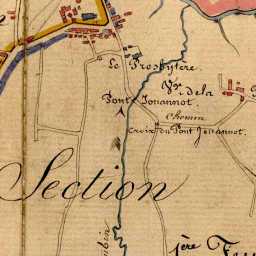 Le Presbytère.
Vge de la
Pont Jouannot.
Chemin
Croix du Pont Jouannot.
Section
1ère